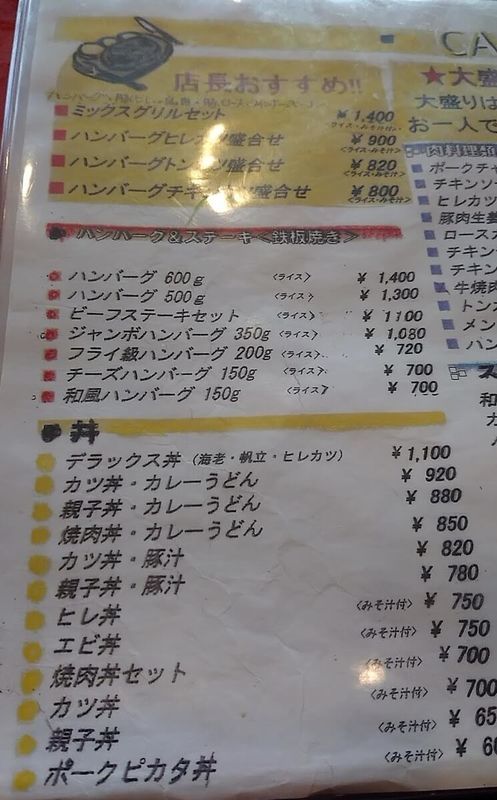 店長おすすめ!!
ミックスグリルセット ¥1,400
<ライス・みそ汁>
ハンバーグヒレカツ盛合せ ¥900
<ライス・みそ汁>
ハンバーグトンカツ盛合せ ¥820
<ライス・みそ汁>
ハンバーグチキンカツ盛合せ ¥800
<ライス・みそ汁>
ハンバーグ&ステーキ<鉄板焼き>
ハンバーグ 600g <ライス> ¥ 1,400
ハンバーグ 500g <ライス> ¥ 1,300
ビーフステーキセット ¥ 1100
ジャンボハンバーグ 350g <ライス> ¥ 1,080
フライ級ハンバーグ 200g <ライス> ¥ 720
チーズハンバーグ 150g <ライス> ¥ 700
和風ハンバーグ 150g <ライス> ¥ 700
丼
デラックス丼 (海老・帆立・ヒレカツ) ¥1,100
カツ丼・カレーうどん ¥ 920
親子丼・カレーうどん ¥ 880
焼肉丼・カレーうどん ¥ 850
カツ丼・豚汁 ¥ 820
親子丼・豚汁 ¥ 780
ヒレ丼 <みそ汁付> ¥ 750
エビ丼 <みそ汁付> ¥ 750
焼肉丼セット <みそ汁付> ¥ 700
カツ丼 <みそ汁付> ¥ 700
親子丼 <みそ汁付> ¥ 65
ポークピカタ丼 <みそ汁付> ¥ 60
CA
★大盛
大盛りは
お一人で
肉料理
ポークチャ
チキンソ
ヒレカツ
豚肉生姜
ロースカ
チキン
チキ
牛焼肉
トンカ
メン
ハン
ス
和
カ